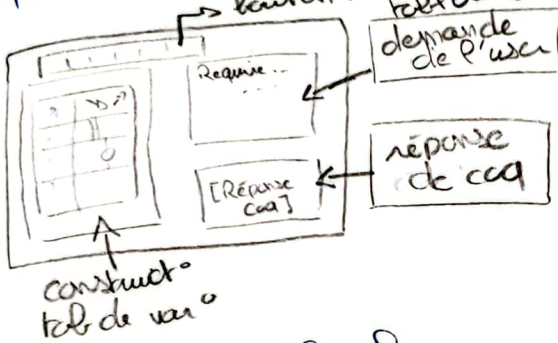 demande
de l'user
Require...
réponse
de coq
[Réponse
coq]
construct°
tab de var°